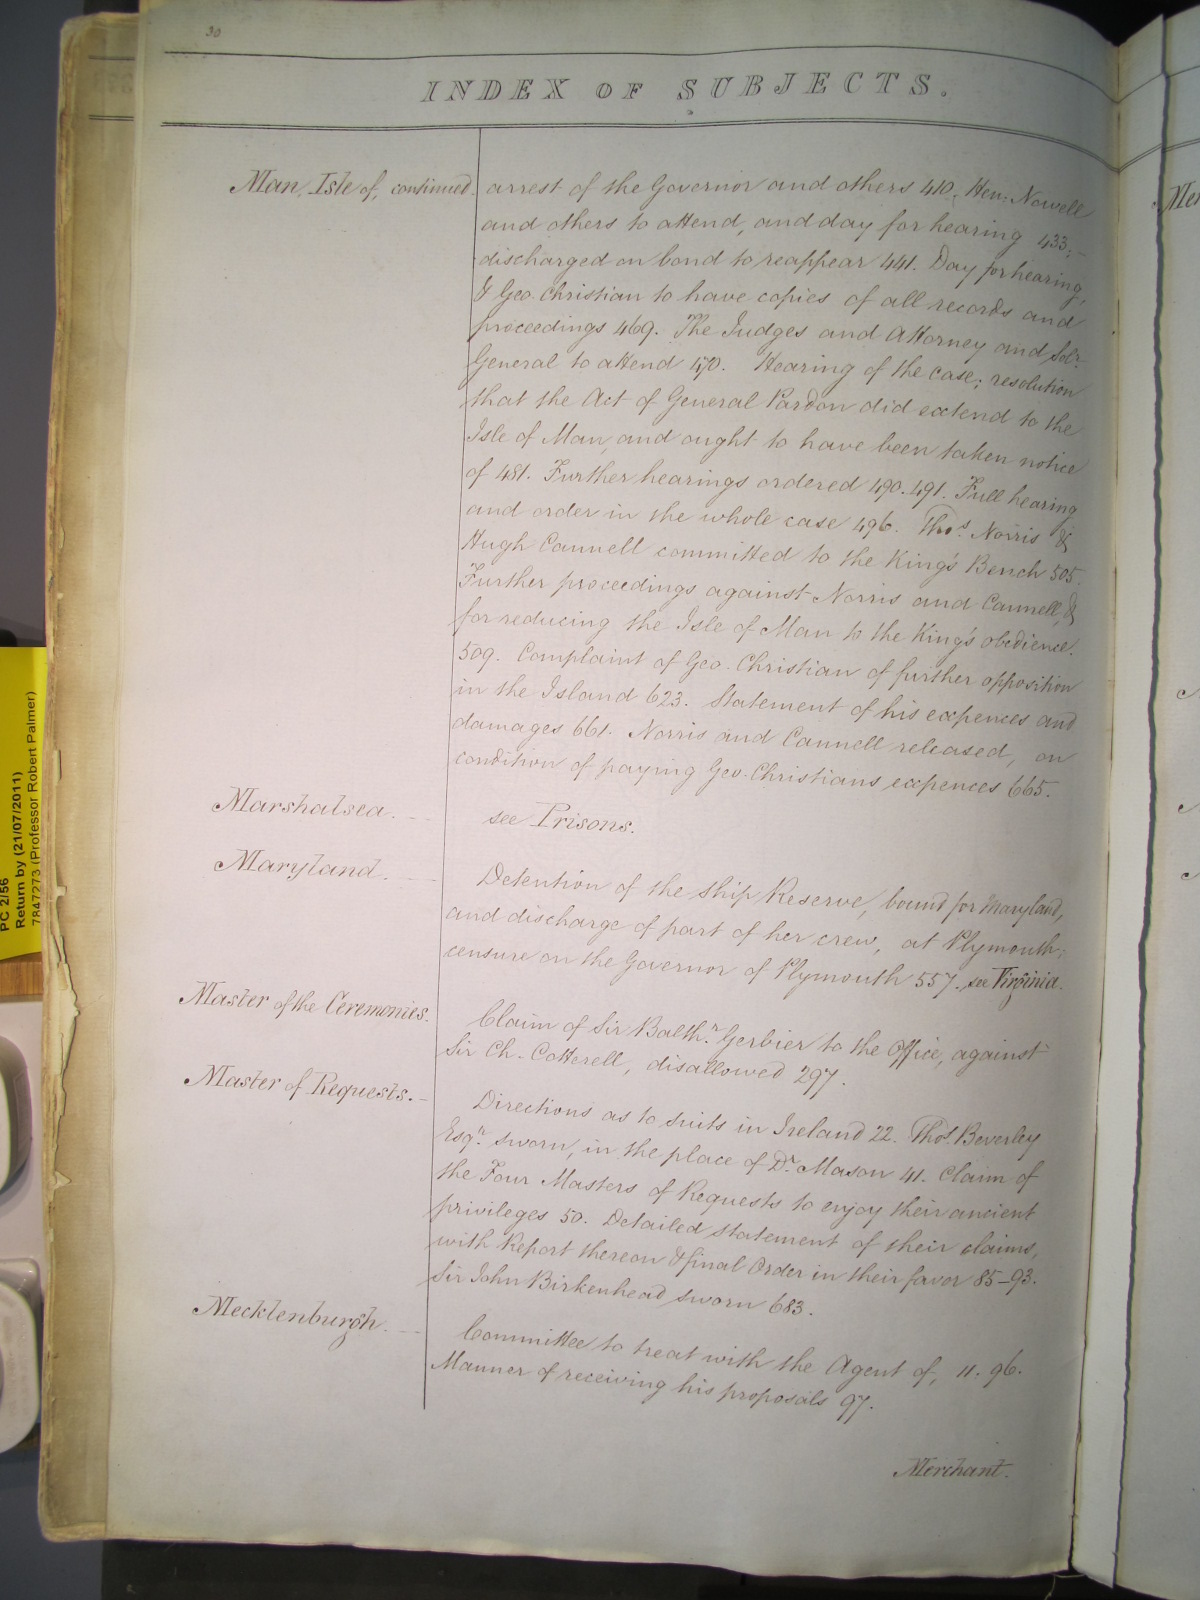 30
INDEX OF SUBJECTS.
Man, Isle of, continued. arrest of the Governor and others 410. Hen: Nowell
and others to attend, and day for hearing 433;-
discharged on bond to reappear 441. Day for hearing,
& Geo. Christian to have copies of all records and
proceedings 469. The Judges and Attorney and Solr.
General to attend 470. Hearing of the case; resolution
that the Act of General Pardon did extend to the
Isle of Man, and ought to have been taken notice
of 481. Further hearings ordered 490. 491. Full hearing
and order in the whole case 496. Thos. Norris &
Hugh Cannell committed to the King's Bench 505.
Further proceedings against Norris and Cannell, &
for reducing the Isle of Man to the King's obedience.
509. Complaint of Geo. Christian of further opposition
in the Island 623. Statement of his expences and
damages 661. Norris and Cannell released, on
condition of paying Geo. Christians expences 665.
Marshalsea. see Prisons.
Maryland. Detention of the ship Reserve, bound for Maryland,
and discharge of part of her crew, at Plymouth;
censure on the Governor of Plymouth 557. see Virginia.
Master of the Ceremonies. Claim of Sir Balthr. Gerbier to the Office, against
Sir Ch. Cotterell, disallowed 297.
Master of Requests. Directions as to suits in Ireland 22. Thos. Beverley
Esqr. sworn, in the place of Dr. Mason 41. Claim of
the Four Masters of Requests to enjoy their ancient
privileges 50. Detailed statement of their claims,
with Report thereon & final Order in their favor 85-93.
Sir John Birkenhead sworn 683.
Mecklenburgh. Committee to treat with the Agent of, 11. 96.
Manner of receiving his proposals 97.
Merchant.
Mer
PC 2/56
Return by (21/07/2011)
7847273 (Professor Robert Palmer)